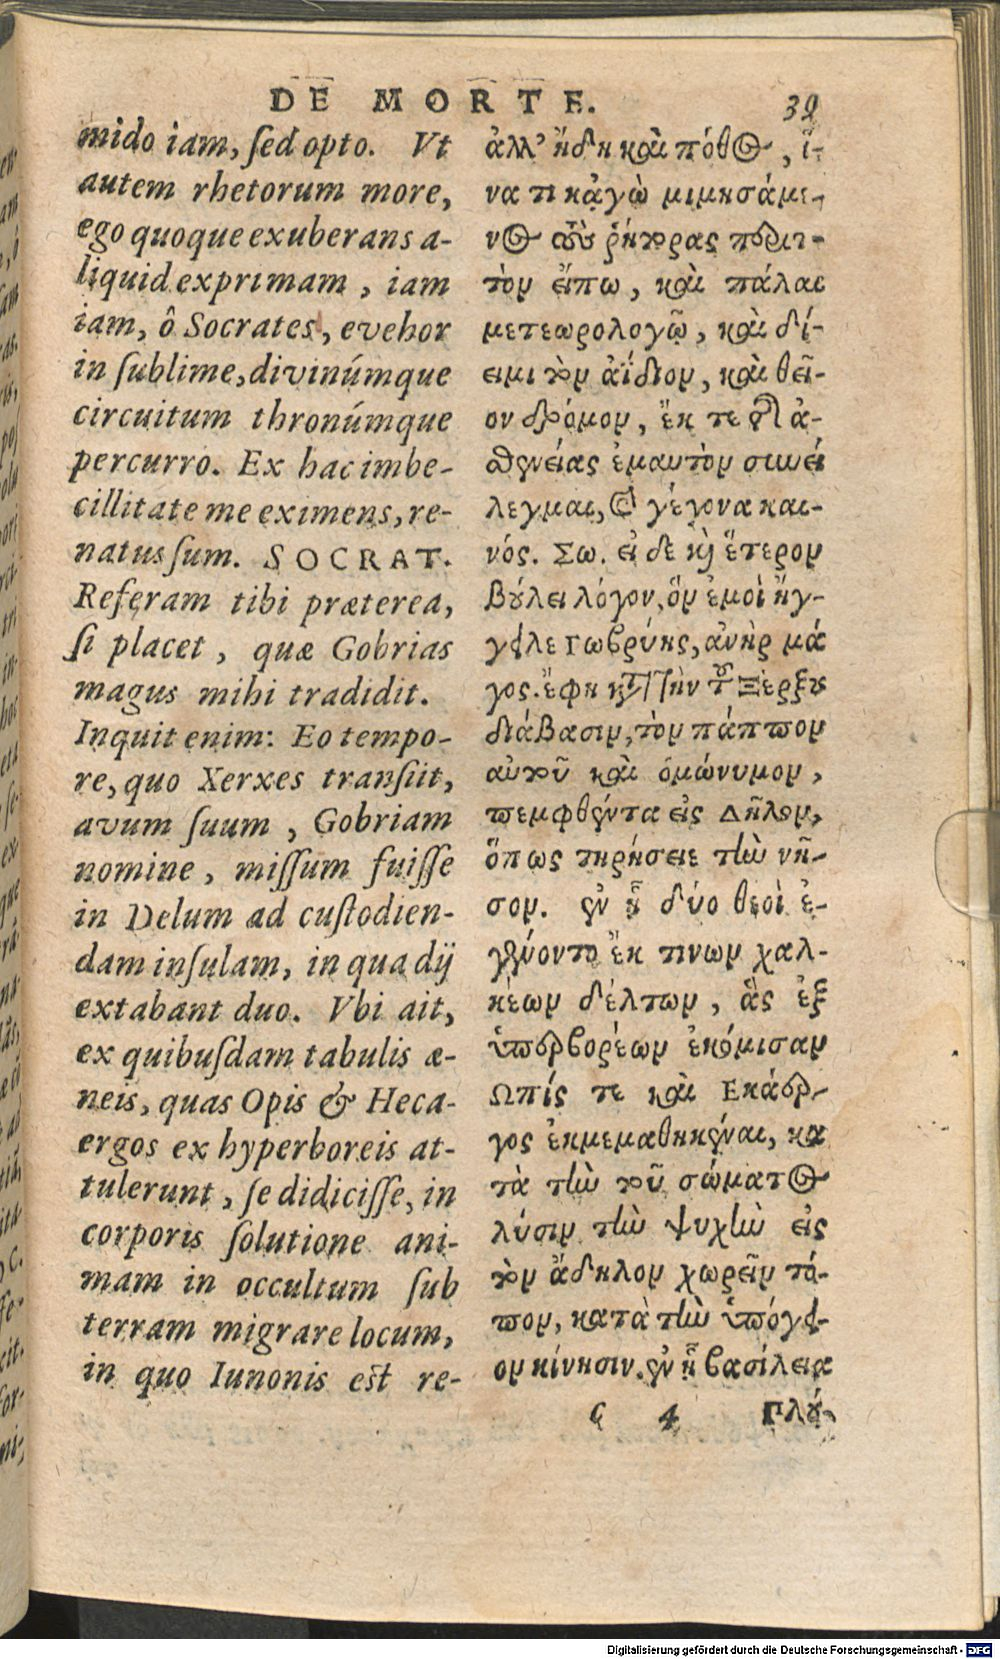 DE MORTE. 39
mido iam, ſed opto. Vt
autem rhetorum more,
ego quoque exuberans a-
liquid exprimam, iam
iam, ô Socrates, evehor
in ſublime, divinúmque
circuitum thronúmque
percurro. Ex hac imbe-
cillitate me eximens, re-
natus ſum. SOCRAT.
Referam tibi præterea,
ſi placet, quæ Gobrias
magus mihi tradidit.
Inquit enim: Eo tempo-
re, quo Xerxes tranſiit,
avum ſuum, Gobriam
nomine, miſſum fuiſſe
in Delum ad cuſtodien-
dam inſulam, in qua dij
extabant duo. Vbi ait,
ex quibuſdam tabulis æ-
neis, quas Opis & Heca-
ergos ex hyperboreis at-
tulerunt, ſe didiciſſe, in
corporis ſolutione ani-
mam in occultum ſub
terram migrare locum,
in quo Iunonis est re-
ἀλλ' ἤδη καὶ πόθος, ἵ-
να τι κἀγὼ μιμησάμε-
νος τοὺς ῥήτορας περιτ-
τὸν εἴπω, καὶ πάλαι
μετεωρολογῶ, καὶ δί-
ειμι τὸν ἀΐδιον, καὶ θεῖ-
ον δρόμον, ἔκ τε τῆς ἀ-
σθενείας ἐμαυτὸν συνεί
λεγμαι, καὶ γέγονα και-
νός. Σω. εἰ δὲ καὶ ἕτερον
βούλει λόγον, ὃν ἐμοὶ ἤγ-
γειλε Γωβρύης, ἀνὴρ μά
γος. ἔφη κατὰ τὴν τοῦ Ξέρξου
διάβασιν, τὸν πάππον
αὐτοῦ καὶ ὁμώνυμον,
πεμφθέντα εἰς Δῆλον,
ὅπως τηρήσειε τὴν νῆ-
σον. ἐν ᾗ δύο θεοὶ ἐ-
γένοντο ἔκ τινων χαλ-
κέων δέλτων, ἃς ἐξ
ὑπερβορέων ἐκόμισαν
Ωπίς τε καὶ Εκάερ-
γος ἐκμεμαθηκέναι, κα
τὰ τὴν τοῦ σώματος
λύσιν τὴν ψυχὴν εἰς
τὸν ἄδηλον χωρεῖν τό-
πον, κατὰ τὴν ὑπόγει-
ον κίνησιν. ἐν ᾗ βασίλεια
C 4 Πλού-
Digitalisierung gefördert durch die Deutsche Forschungsgemeinschaft - DFG